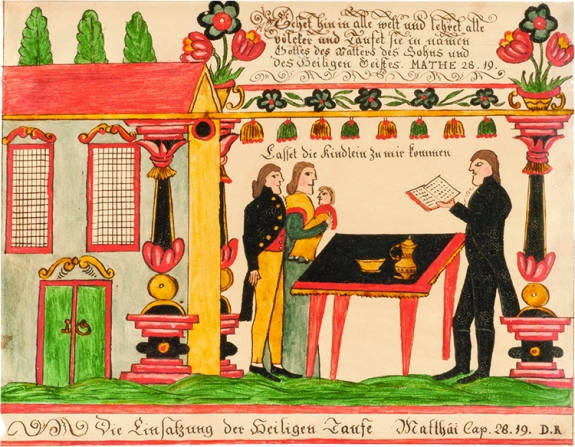 Gehet hin in alle welt und lehret alle
völcker und Taufet sie in namen
Gottes des Vatters des Sohns und
des Heiligen Geistes. MATHE 28. 19.
Lasset die Kindlein zu mir kommen
Die Einsatzung der Heiligen Taufe Matthäi Cap. 28. 19. D.R